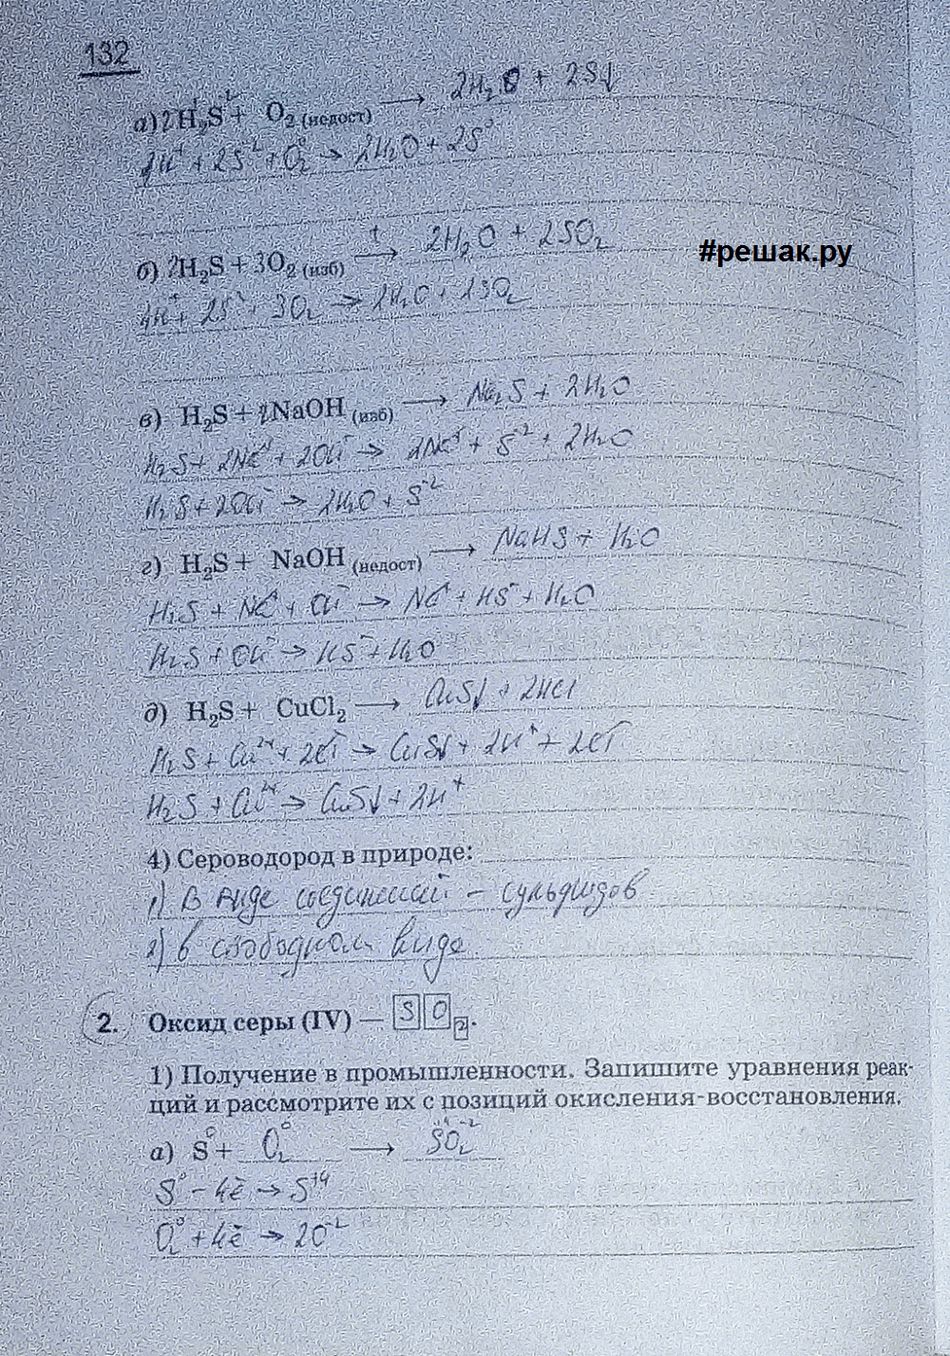 132
а) 2H₂S + O₂ (недост) → 2H₂O + 2S↓
4H⁺ + 2S⁻² + O₂⁰ → 2H₂O + 2S⁰
б) 2H₂S + 3O₂ (изб) →ᵗ 2H₂O + 2SO₂
#решак.ру
4H⁺ + 2S⁻² + 3O₂ → 2H₂O + 2SO₂
в) H₂S + 2NaOH (изб) → Na₂S + 2H₂O
H₂S + 2Na⁺ + 2OH⁻ → 2Na⁺ + S⁻² + 2H₂O
H₂S + 2OH⁻ → 2H₂O + S⁻²
г) H₂S + NaOH (недост) → NaHS + H₂O
H₂S + Na⁺ + OH⁻ → Na⁺ + HS⁻ + H₂O
H₂S + OH⁻ → HS⁻ + H₂O
д) H₂S + CuCl₂ → CuS↓ + 2HCl
H₂S + Cu²⁺ + 2Cl⁻ → CuS↓ + 2H⁺ + 2Cl⁻
H₂S + Cu²⁺ → CuS↓ + 2H⁺
4) Сероводород в природе:
1) В виде соединений – сульфидов
2) в свободном виде
2. Оксид серы (IV) — SO₂.
1) Получение в промышленности. Запишите уравнения реак-
ций и рассмотрите их с позиций окисления-восстановления.
а) S⁰ + O₂⁰ → S⁺⁴O₂⁻²
S⁰ – 4ē → S⁺⁴
O₂⁰ + 4ē → 2O⁻²